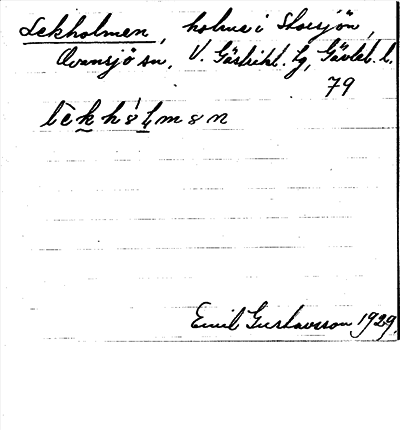 Lekholmen, holme i Storsjön,
Ovansjö sn, V. Gästrikl. tg, Gävleb. l.
79
lèkhòlmen
Emil Gustavsson 1929.